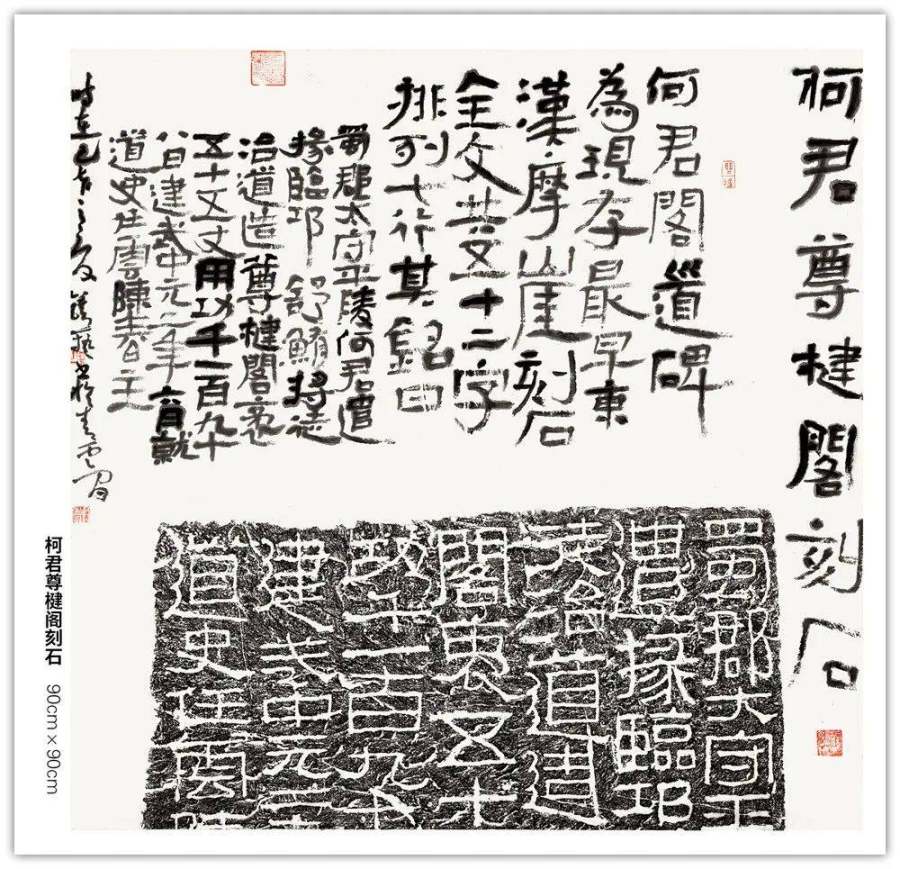 何君尊楗閣刻石
何君閣道碑
為現存最早東
漢摩山崖刻石
全文共五十二字
排列七行其銘曰
蜀郡太守平陵何君遣
掾臨邛舒鮪將徒
治道造尊楗閣袤
五十五丈用功千一百九十
八日建武中元二年六月就
道史任雲陳春主
時在乙巳之夏
蜀郡大守平
遣掾臨邛
徒治道造
閣袤五十
功千一百九十
建武中元二
道史任雲陳
柯君尊楗阁刻石 90cm×90cm